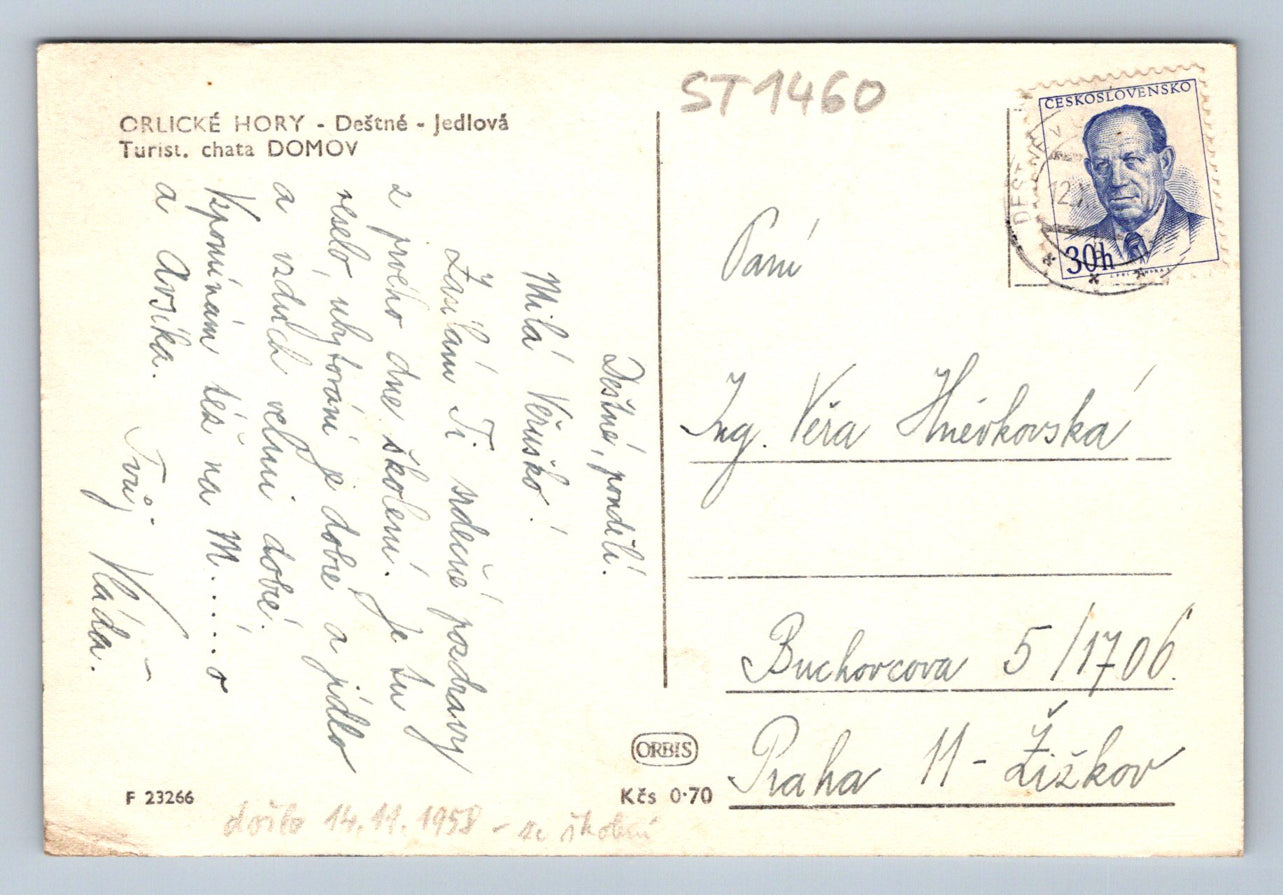 ORLICKÉ HORY - Deštné - Jedlová
Turist. chata DOMOV
ST1460
ČESKOSLOVENSKO
30h
DEŠTNÉ
12.
Deštné, pondělí.
Milá Veruško!
Zasílám Ti srdečné pozdravy
z prvého dne školení. Je tu
veselo, ubytování je dobré a jídlo
a vzduch velmi dobré.
Vzpomínám též na M.....o
a
Tvůj Vláďa.
Paní
Ing. Věra Hněvkovská
Buchovcova 5/1706.
Praha 11 - Žižkov
ORBIS
F 23266
Kčs 0·70
došlo 14.11.1958 - ze školení